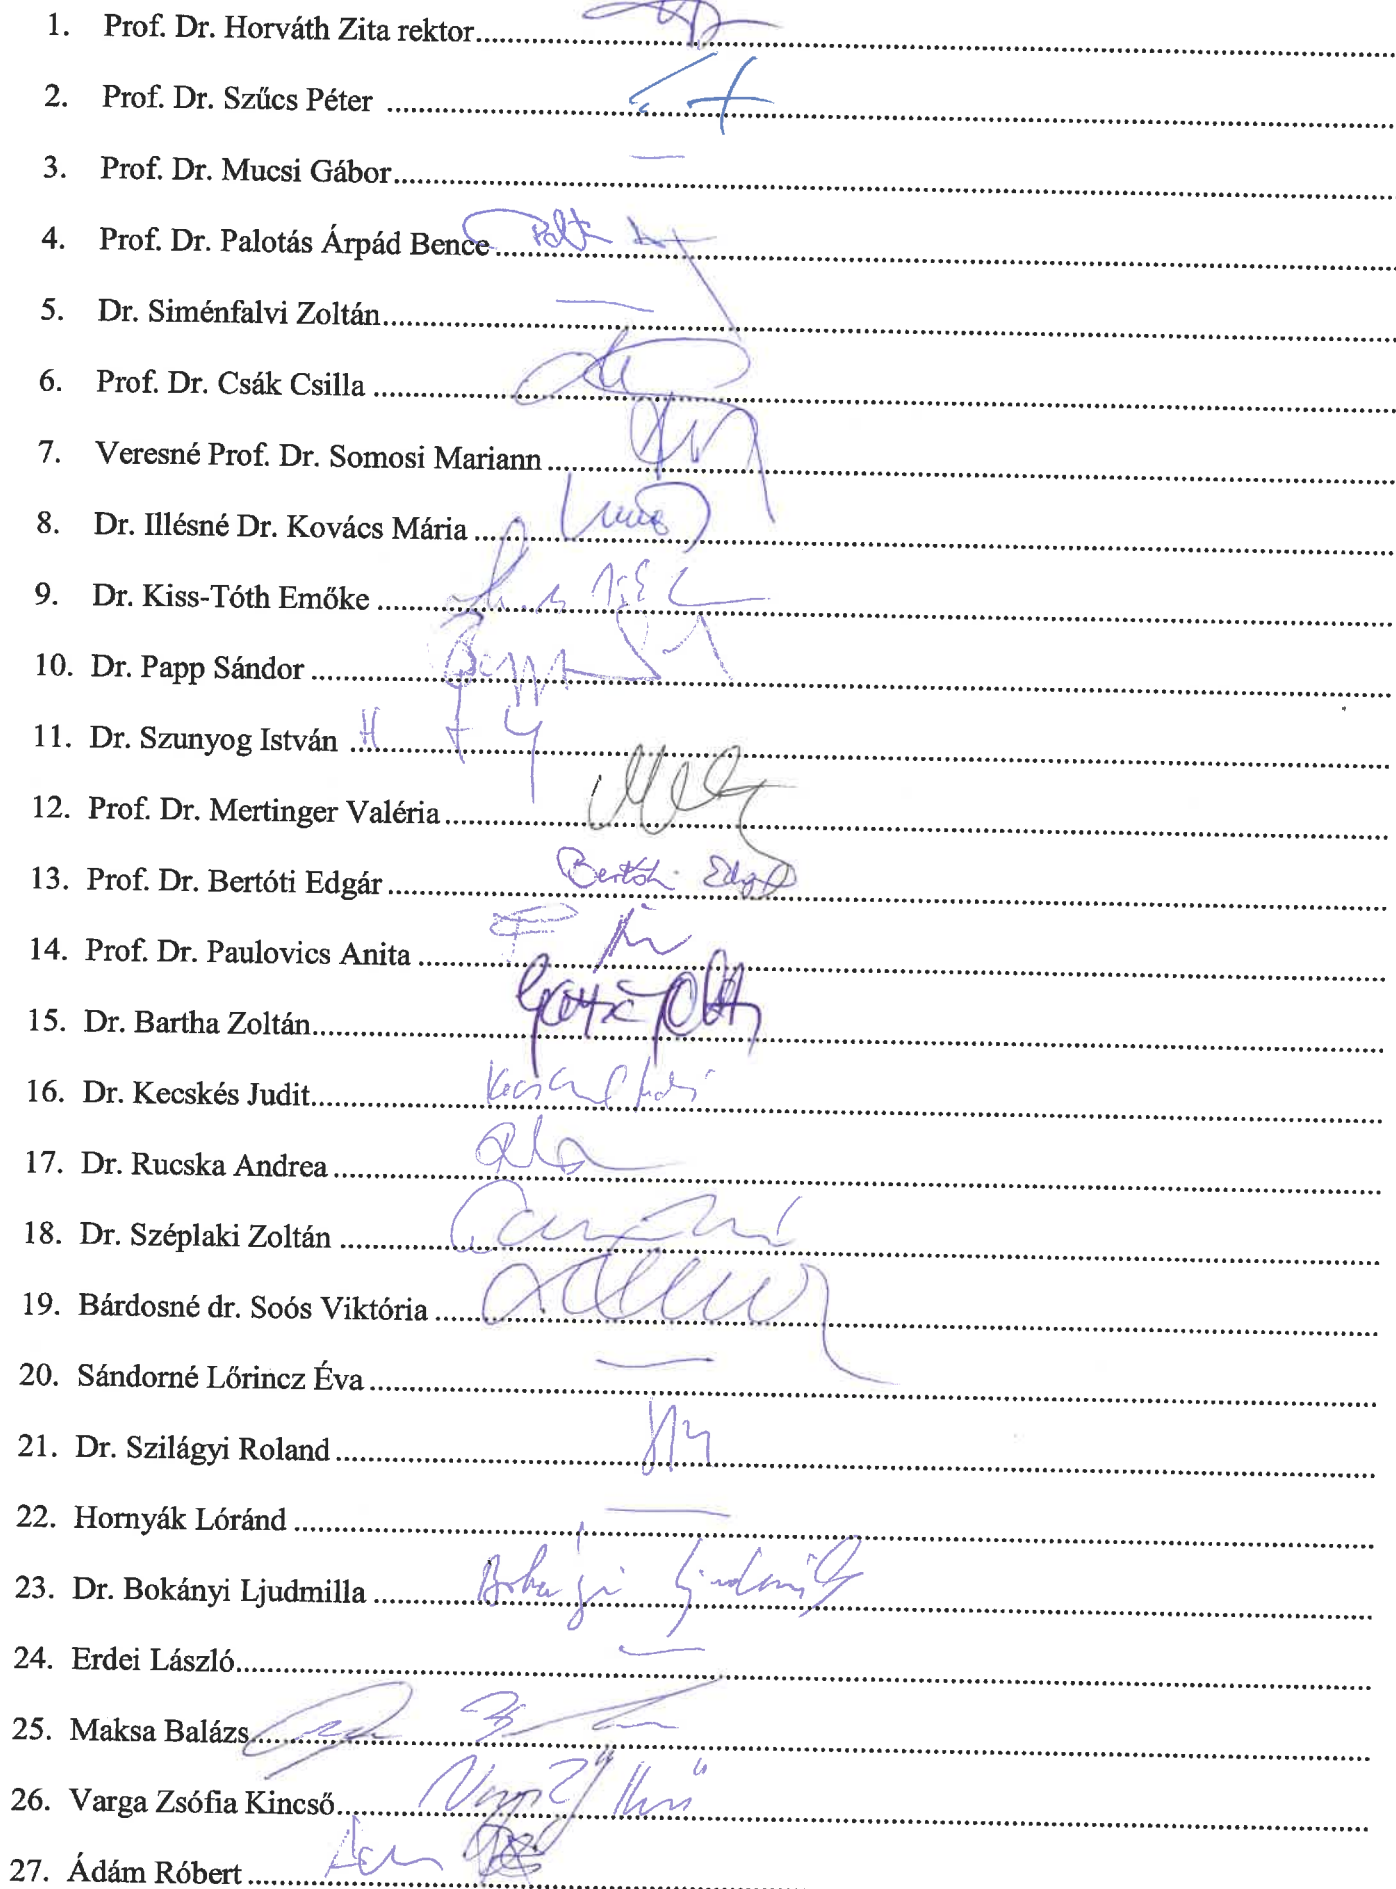 1. Prof. Dr. Horváth Zita rektor
2. Prof. Dr. Szűcs Péter
3. Prof. Dr. Mucsi Gábor
4. Prof. Dr. Palotás Árpád Bence
5. Dr. Siménfalvi Zoltán
6. Prof. Dr. Csák Csilla
7. Veresné Prof. Dr. Somosi Mariann
8. Dr. Illésné Dr. Kovács Mária
9. Dr. Kiss-Tóth Emőke
10. Dr. Papp Sándor
11. Dr. Szunyog István
12. Prof. Dr. Mertinger Valéria
13. Prof. Dr. Bertóti Edgár Bertóti Edgár
14. Prof. Dr. Paulovics Anita
15. Dr. Bartha Zoltán
16. Dr. Kecskés Judit
17. Dr. Rucska Andrea
18. Dr. Széplaki Zoltán
19. Bárdosné dr. Soós Viktória
20. Sándorné Lőrincz Éva
21. Dr. Szilágyi Roland
22. Hornyák Lóránd
23. Dr. Bokányi Ljudmilla
24. Erdei László
25. Maksa Balázs
26. Varga Zsófia Kincső
27. Ádám Róbert